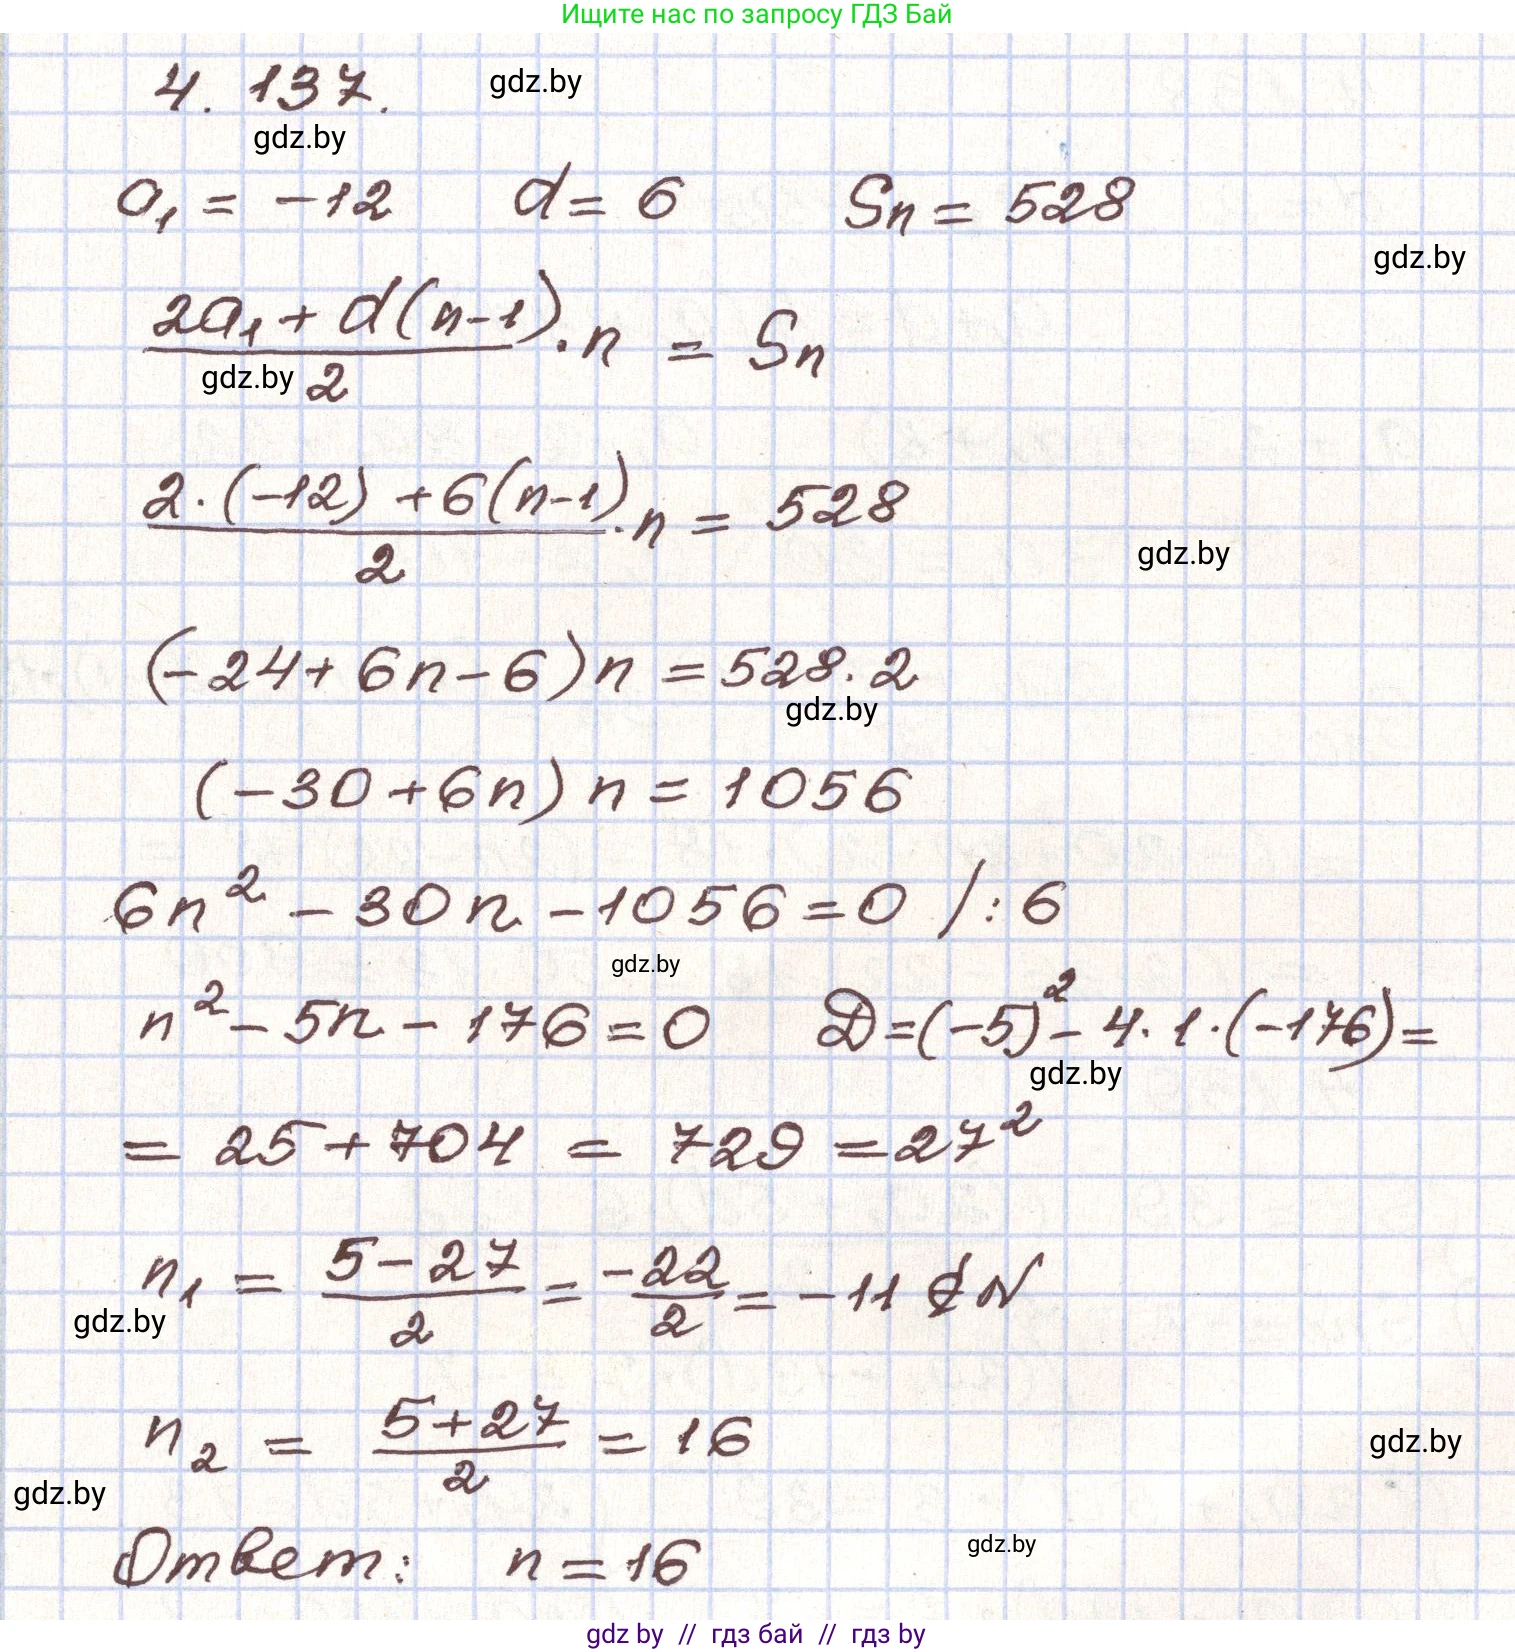 Ищите нас по запросу ГДЗ Бай
4. 137.
gdz.by
gdz.by
a₁ = -12 d = 6 Sn = 528
gdz.by
(2a₁ + d(n-1))/2 · n = Sn
gdz.by
(2·(-12) + 6(n-1))/2 · n = 528
gdz.by
(-24 + 6n - 6)n = 528·2
gdz.by
(-30 + 6n) n = 1056
6n² - 30n - 1056 = 0 /:6
gdz.by
n² - 5n - 176 = 0 D = (-5)² - 4·1·(-176) =
gdz.by
= 25 + 704 = 729 = 27²
n₁ = (5-27)/2 = -22/2 = -11 ∉ N
gdz.by
n₂ = (5+27)/2 = 16
gdz.by
gdz.by
Ответ: n = 16
gdz.by
gdz by // гдз бай // гдз by